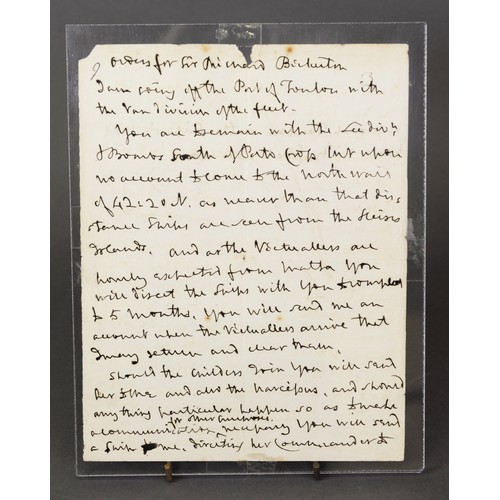 orders for Sir Richard Bickerton
I am going off the Port of Toulon with
the Van division of the fleet -
You are to remain with the Lee divn
& Bombs South of Porto Cross but upon
no account to come to the Northward
of 42:20 N. as nearer than that dis
tance Ships are seen from the Hieres
Islands. and as the Victuallers are
hourly expected from Malta You
will direct the Ships with You to complete
to 5 months, You will send me an
account when the Victuallers arrive that
I may return and clear them,
Should the Childers Join You will send
her to me and also the Narcissus, and should
any thing particular happen so as to make
for other
a communication necessary You will send
a Ship to me, directing her Commander to